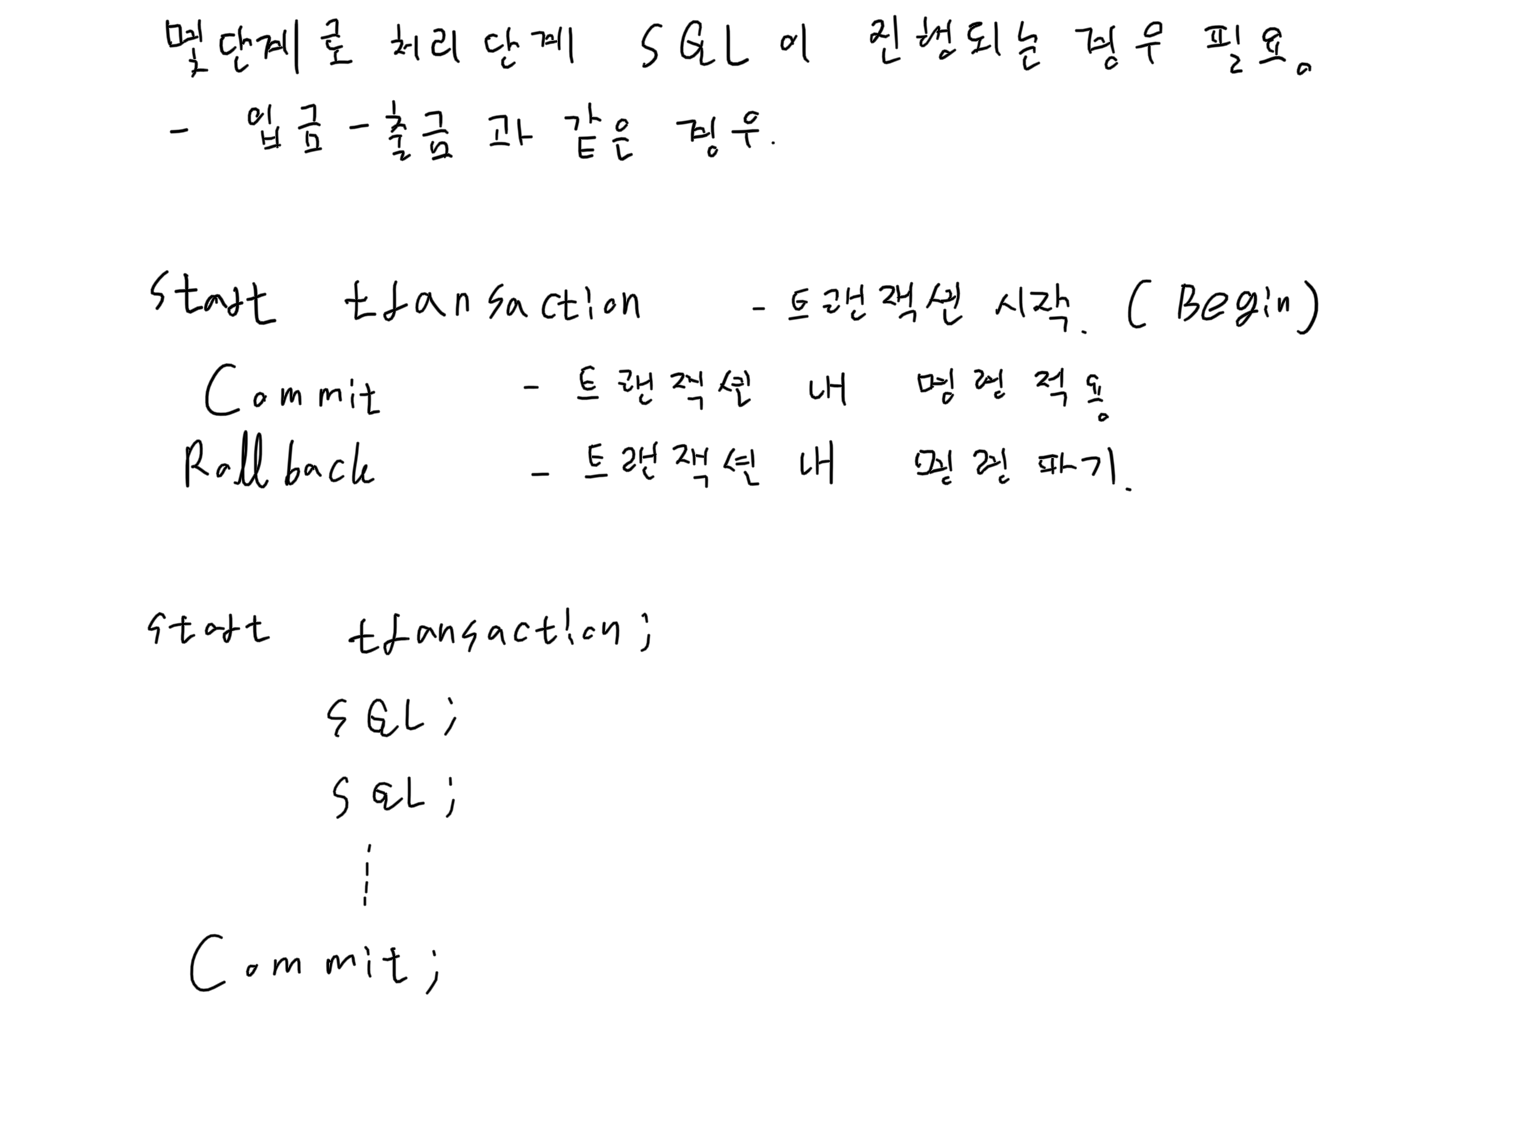 몇단계로 처리단계 SQL이 진행되는 경우 필요.
- 입금-출금과 같은 경우.
Start transaction - 트랜잭션 시작. (Begin)
Commit - 트랜잭션 내 명령 적용
Rollback - 트랜잭션 내 명령 파기.
start transaction;
SQL;
SQL;
Commit;